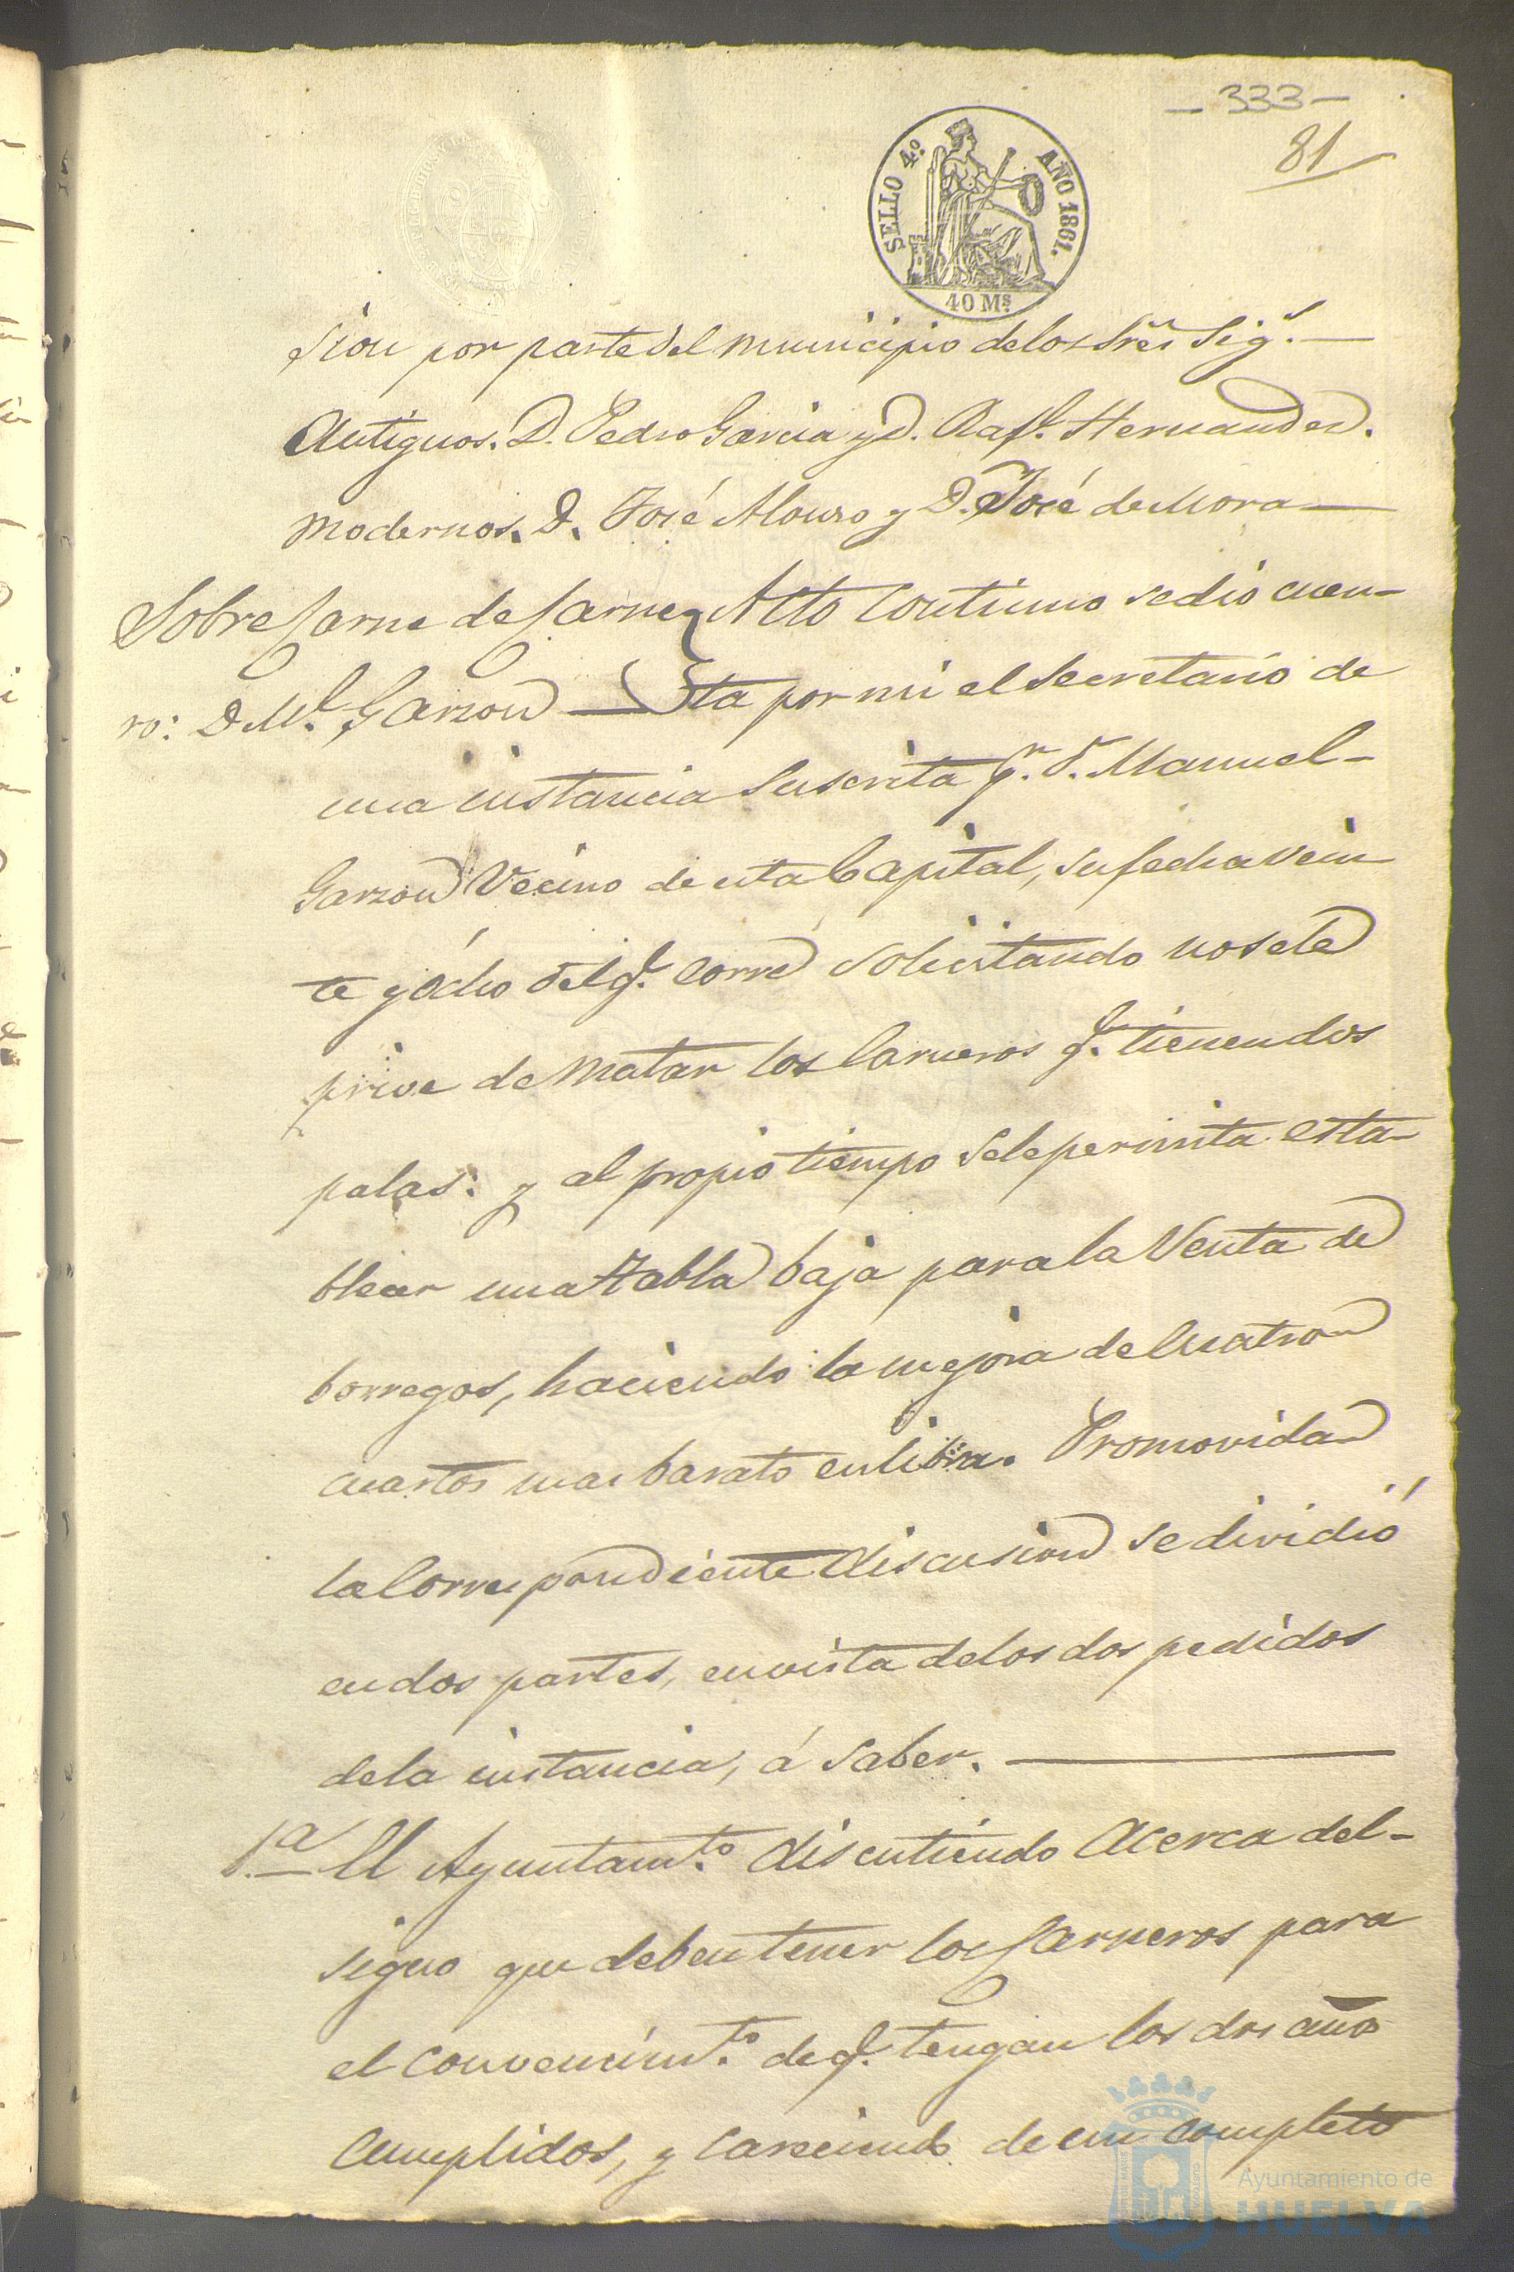 - 333 -
81
SELLO 4º. AÑO 1861.
40 Ms.
sion por parte del municipio delos Sres. Sigs.
Antiguos. D. Pedro Garcia y D. Rafl. Hernandez.
modernos. D. José Alonso y D. José de Mora
Sobre Carne de Carne
ro: D. Ml. Garzon
Acto continuo se dio cuen-
ta por mi el Secretario de
una instancia suscrita pr. D. Manuel
Garzon Vecino de esta Capital, su fecha vein
te y ocho del q. corre solicitando no se le
prive de matar los Carneros q. tienen dos
palas: y al propio tiempo se le permita esta-
blecer una Tabla baja para la Venta de
borregos, haciendo la mejora de Cuatro
cuartos mas barato en libra. Promovida
la Correspondiente discusion se dividió
en dos partes, en vista delos dos pedidos
dela instancia, á saber.
1.a El Ayuntamto. discutiendo acerca del
signo que deben tener los Carneros para
el convencimto. de q. tengan los dos años
cumplidos, y careciendo de un completo
Ayuntamiento de
HUELVA